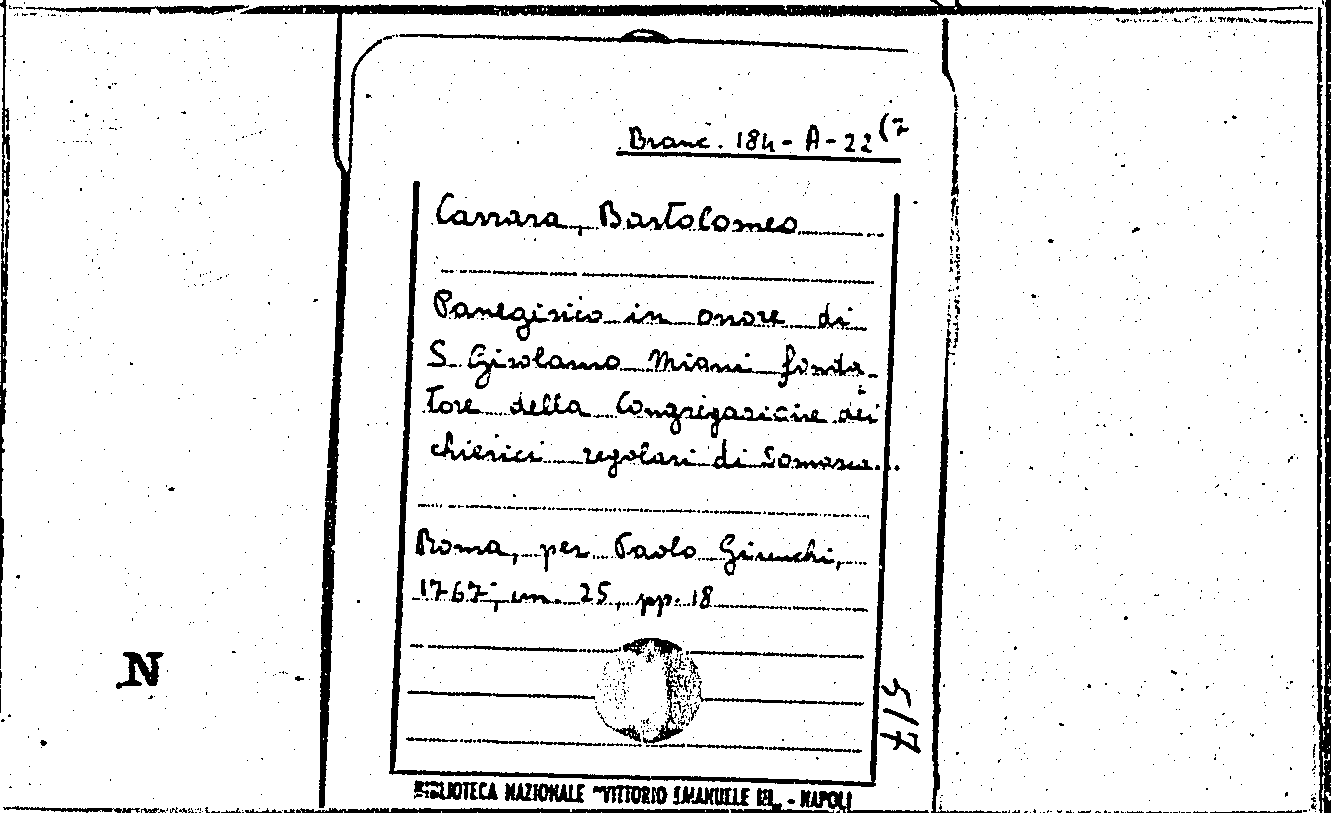 Branc. 184-A-22 (7
Carrara, Bartolomeo
Panegirico in onore di
S. Girolamo Miani fonda-
tore della Congregazione dei
chierici regolari di Somasca...
Roma, per Paolo Giunchi,
1767, cm. 25, pp. 18
N
5/7
BIBLIOTECA NAZIONALE "VITTORIO EMANUELE III" - NAPOLI